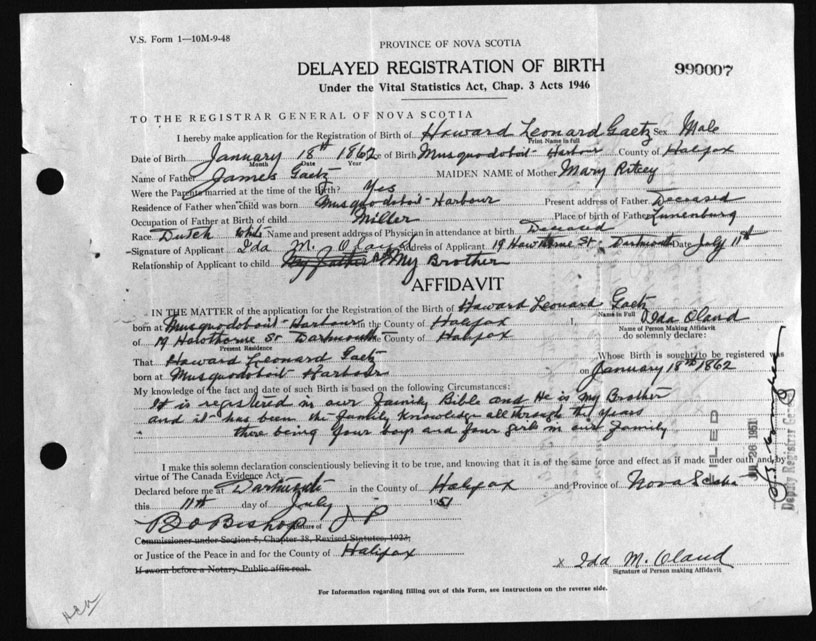 V.S. Form 1—10M-9-48
PROVINCE OF NOVA SCOTIA
DELAYED REGISTRATION OF BIRTH
990007
Under the Vital Statistics Act, Chap. 3 Acts 1946
TO THE REGISTRAR GENERAL OF NOVA SCOTIA
I hereby make application for the Registration of Birth of Howard Leonard Gaetz Sex Male
Print Name in full
Date of Birth January 18th 1862 ce of Birth Musquodoboit Harbour County of Halifax
Month Date Year
Name of Father James Gaetz MAIDEN NAME of Mother Mary Ritcey
Were the Parents married at the time of the Birth? Yes
Residence of Father when child was born Musquodoboit Harbour Present address of Father Deceased
Occupation of Father at Birth of child Miller Place of birth of Father Lunenburg
Race Dutch White Name and present address of Physician in attendance at birth Deceased
Signature of Applicant Ida M. Oland Address of Applicant 19 Hawthorne St. Dartmouth Date July 11th
Relationship of Applicant to child My Father My Brother
AFFIDAVIT
IN THE MATTER of the application for the Registration of the Birth of Howard Leonard Gaetz
Name in Full
born at Musquodoboit Harbour in the County of Halifax I, Ida Oland
Name of Person Making Affidavit
of 19 Hawthorne St Dartmouth County of Halifax do solemnly declare:
Present Residence
That Howard Leonard Gaetz Whose Birth is sought to be registered was
born at Musquodoboit Harbour on January 18th 1862
My knowledge of the fact and date of such Birth is based on the following Circumstances:
It is registered in our Family Bible and He is My Brother
and it has been the family knowledge all through the years
there being four boys and four girls in our family
FILED
JUL 26 1951
Deputy Registrar General
I make this solemn declaration conscientiously believing it to be true, and knowing that it is of the same force and effect as if made under oath and by
virtue of The Canada Evidence Act.
Declared before me at Dartmouth in the County of Halifax and Province of Nova Scotia
this 11th day of July 1951
B O Bishop J P
Signature of
Commissioner under Section 5, Chapter 38, Revised Statutes, 1923;
or Justice of the Peace in and for the County of Halifax
If sworn before a Notary. Public affix real.
x Ida M. Oland
Signature of Person making Affidavit
For Information regarding filling out of this Form, see instructions on the reverse side.